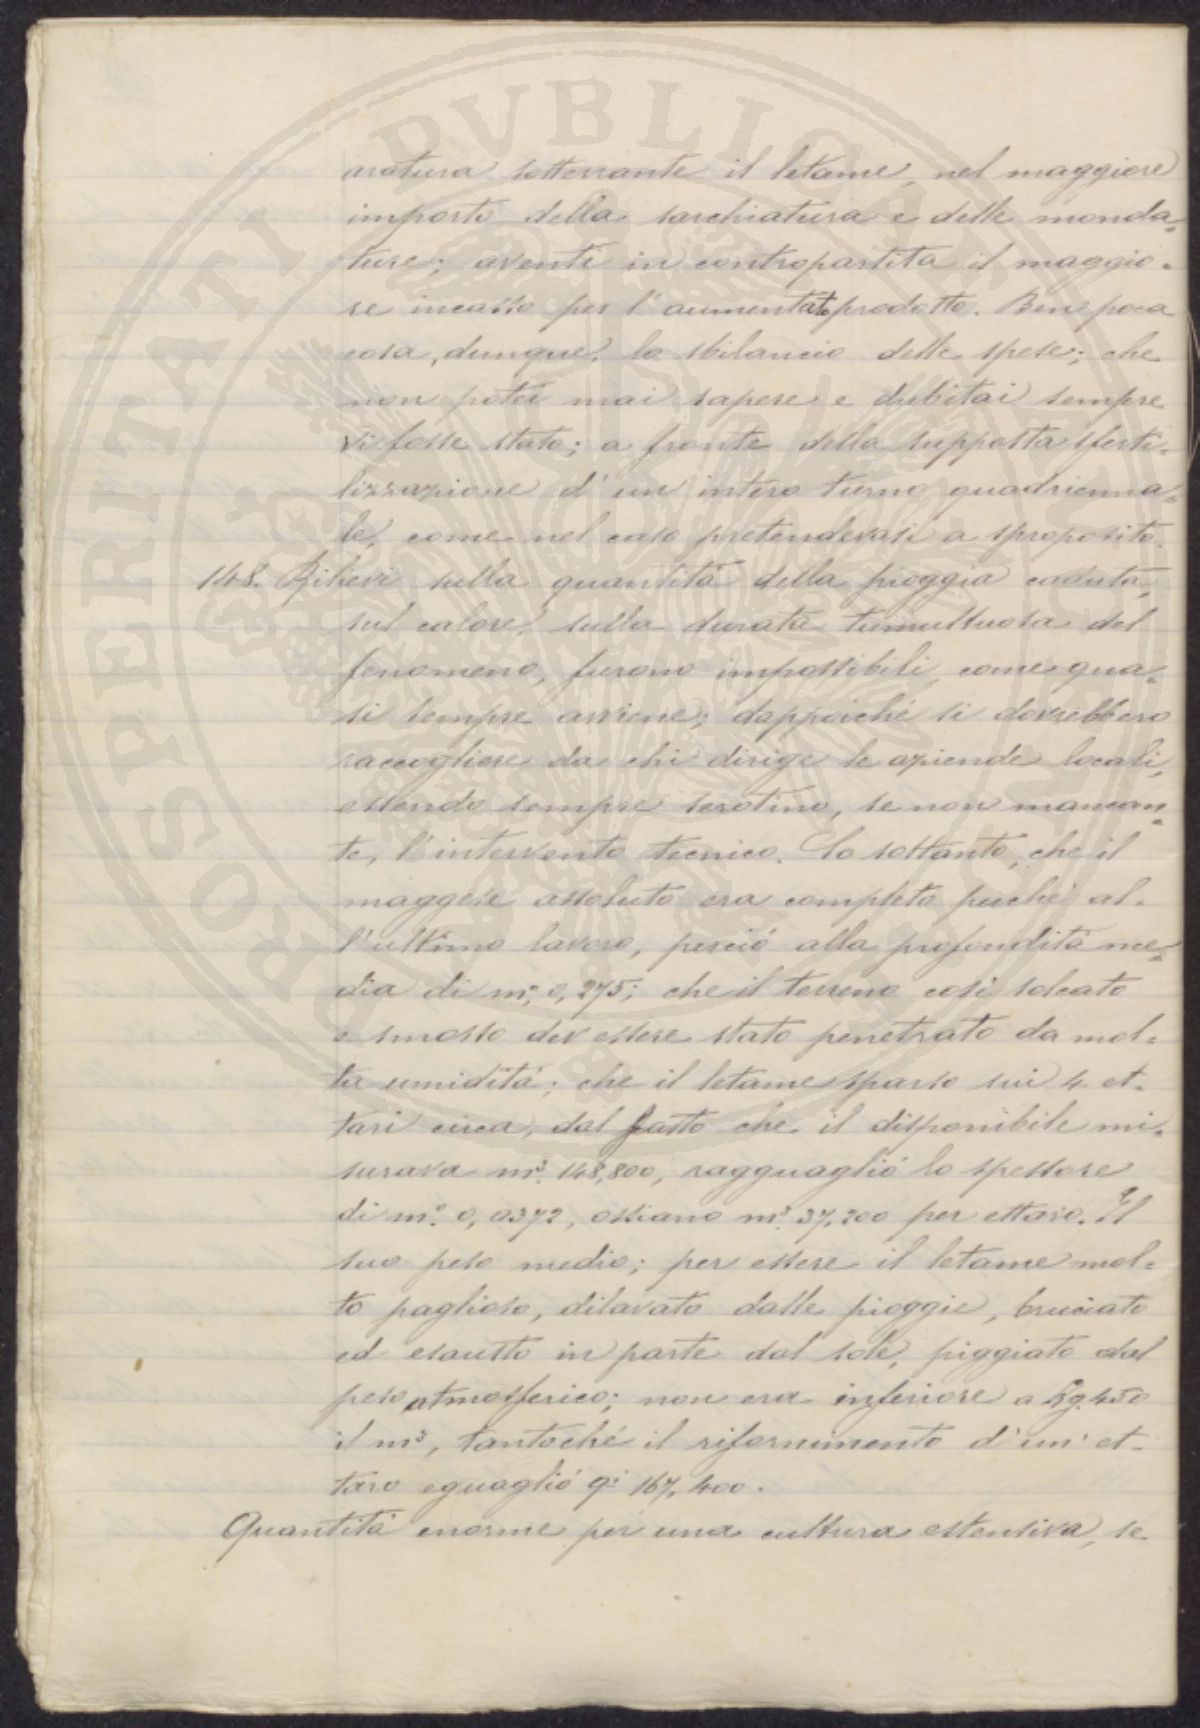 aratura sotterrante il letame, nel maggiore
importo della sarchiatura e delle monda=
ture; aventi in contropartita il maggio=
re incasso per l'aumentato prodotto. Ben poca
cosa, dunque, lo sbilancio delle spese; che
non potei mai sapere e dubitai sempre
vi fosse stato; a fronte della supposta sferti=
lizzazione d'un intero turno quadrienna=
le, come nel caso pretendevasi a sproposito.
148. Rilievi sulla quantità della pioggia caduta,
sul calore, sulla durata tumultuosa del
fenomeno, furono impossibili, come qua=
si sempre avviene; dappoiché si dovrebbero
raccogliere da chi dirige le aziende locali,
essendo sempre serotino, se non mancan=
te, l'intervento tecnico. So soltanto, che il
maggese assoluto era completo fuorché al=
l'ultimo lavoro, perciò alla profondità me=
dia di m.° 0,275; che il terreno così solcato
e smosso dev'essere stato penetrato da mol=
ta umidità; che il letame sparso sui 4 et=
tari circa, dal fatto che il disponibile mi=
surava m³. 148,800, ragguagliò lo spessore
di m.° 0,0372, ossiano m³. 37,200 per ettaro. Il
suo peso medio; per essere il letame mol=
to paglioso, dilavato dalle pioggie, bruciato
ed esausto in parte dal sole, piggiato dal
peso atmosferico; non era inferiore a Kg. 450
il m³, tantoché il rifornimento d'un et=
taro eguagliò q.i 167,400.
Quantità enorme per una cultura estensiva, se
PROSPERITATI PVBLICAE